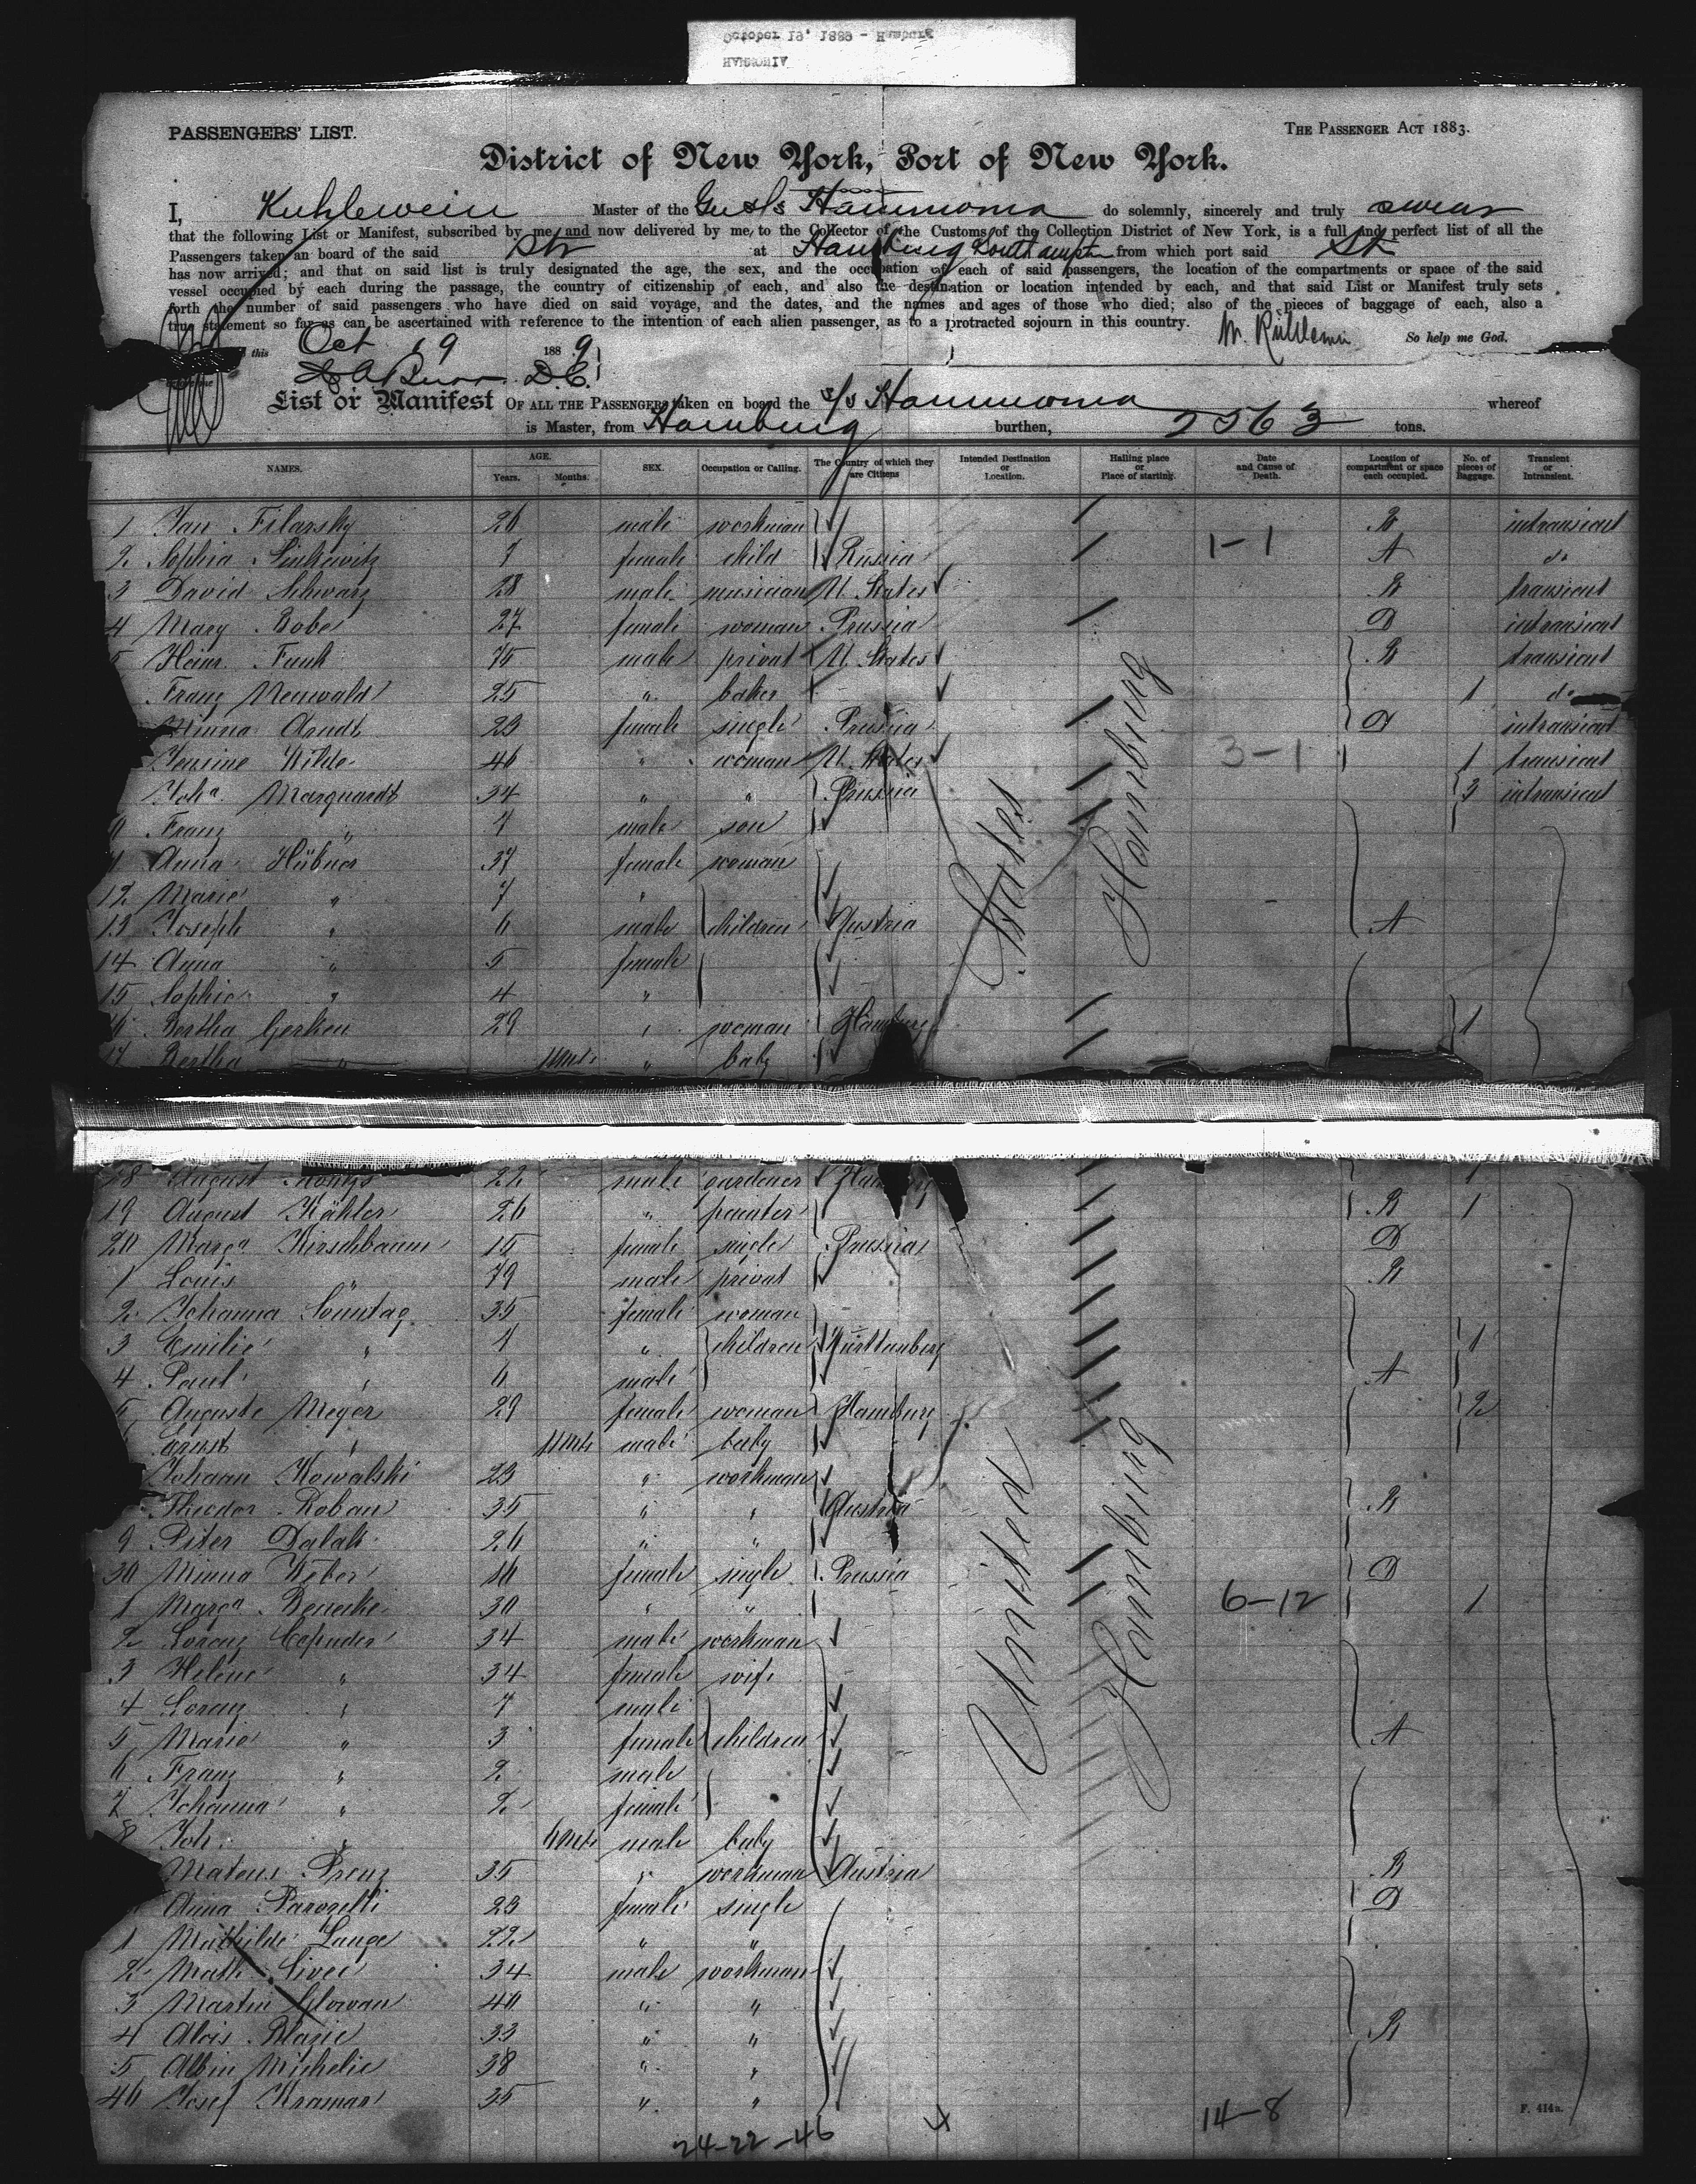 October 19, 1889 - Hamburg
HAMMONIA
PASSENGERS' LIST.
THE PASSENGER ACT 1883.
District of New York, Port of New York.
I, Kuhlewein Master of the S/s Hammonia do solemnly, sincerely and truly swear
that the following List or Manifest, subscribed by me, and now delivered by me, to the Collector of the Customs of the Collection District of New York, is a full and perfect list of all the
Passengers taken on board of the said Str at Hamburg Southampton from which port said Str
has now arrived; and that on said list is truly designated the age, the sex, and the occupation of each of said passengers, the location of the compartments or space of the said
vessel occupied by each during the passage, the country of citizenship of each, and also the destination or location intended by each, and that said List or Manifest truly sets
forth the number of said passengers who have died on said voyage, and the dates, and the names and ages of those who died; also of the pieces of baggage of each, also a
true statement so far as can be ascertained with reference to the intention of each alien passenger, as to a protracted sojourn in this country.
So help me God.
this Oct 19 1889
D.C.
List or Manifest OF ALL THE PASSENGERS taken on board the s/s Hammonia whereof
is Master, from Hamburg burthen, 2563 tons.
NAMES. AGE. Years. Months. SEX. Occupation or Calling. The Country of which they are Citizens Intended Destination or Location. Hailing place or Place of starting. Date and Cause of Death. Location of compartment or space each occupied. No. of pieces of Baggage. Transient or Intransient.
1 Jan Filarsky 26 male workman intransient
2 Sophia Sinkewitz 7 female child Russia 1-1 A do
3 David Schwarz 28 male musician U. States transient
4 Mary Bobe 27 female woman Prussia D intransient
5 Heinr. Funk 75 male privat U. States transient
Franz Menwald 25 " baker 1 do
Minna Arndt 23 female single Prussia D intransient
Jensine Wilde 46 " woman U. States 3-1 1 transient
Joha Marquardt 34 " " Prussia 3 intransient
Franz " 4 male son
Anna Hübner 37 female woman
12 Marie " 7 "
13 Joseph " 6 male children Austria A
14 Anna " 5 female
15 Sophie " 4 "
Bertha Gerken 29 " woman Hamburg 1
17 Bertha " 11 mts " baby
United States
Hamburg
18 August 22 male gardener 1
19 August Kähler 26 " painter 1
20 Marga Kirschbaum 15 female single Prussia D
1 Louis " 79 male privat
2 Johanna Sonntag 35 female woman
3 Emilie " 7 " children Württemberg 1
4 Paul " 6 male A
5 Auguste Meyer 29 female woman Hamburg 2
Ernst " 11 mts male baby
Johann Kowalski 23 " workman
Theodor Roban 35 " " Austria
9 Piter Dalak 26 " "
30 Minna Weber 16 female single Prussia D
1 Marga Benecke 30 " " 6-12 1
2 Lorenz Cepuder 34 male workman
3 Helene " 34 female wife
4 Lorenz " 7 male
5 Marie " 3 female children A
6 Franz " 2 male
7 Johanna " 2 female
8 Joh. " 6 mts male baby
Mateus Prenz 35 " workman Austria
Anna Parozelli 23 female single D
1 Mathilde Lange 22 " "
2 Math Sivec 34 male workman
3 Martin Glowan 40 " "
4 Alois Blazic 33 " "
5 Albin Michelic 38 " "
46 Josef Kramar 35 " "
Hamburg
14-8
F. 414a.
24-22-46